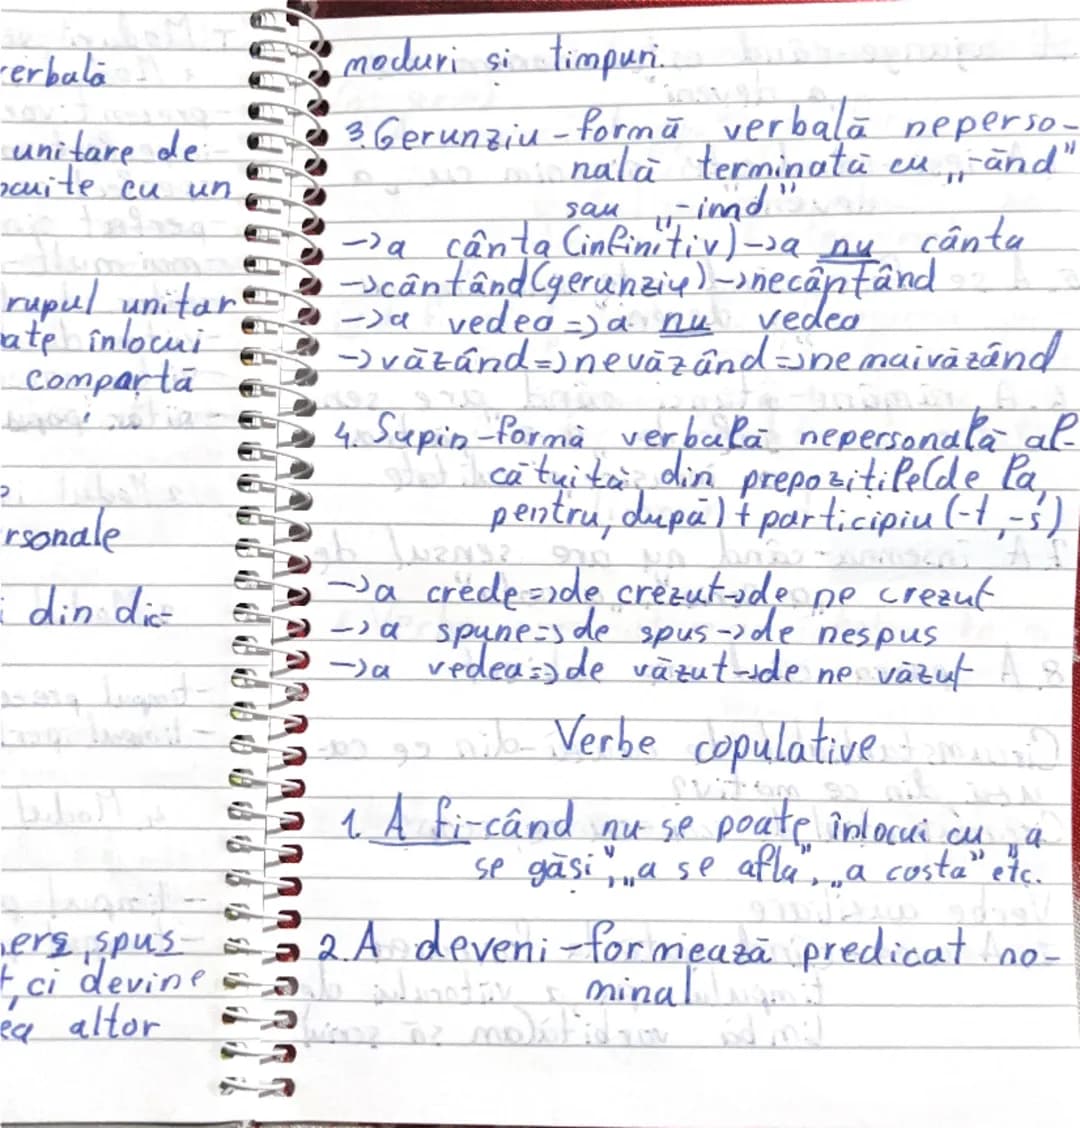 erbală
unitare de
ocuite cu un
rupul unitar
ate înlocui
compartă
i
rsonale
i din dic=
ers, spus
t, ci devine
ea altor
moduri și timpuri.
3. Gerunziu - formă verbală neperso-
nală terminată cu „-ând"
sau „-ind"
-> a cânta (infinitiv) -> a nu cânta
-> cântând (gerunziu) -> necântând
-> a vedea => a nu vedea
-> văzând => nevăzând => nemaivăzând
4. Supin - formă verbală nepersonală al-
cătuită din prepozițile (de la,
pentru, după) + participiu (-t, -s)
-> a crede => de crezut -> de ne crezut
-> a spune => de spus -> de nespus
-> a vedea => de văzut -> de ne văzut
Verbe copulative
1. A fi - când nu se poate înlocui cu „a
se găsi", „a se afla", „a costa" etc.
2. A deveni - formează predicat no-
minal